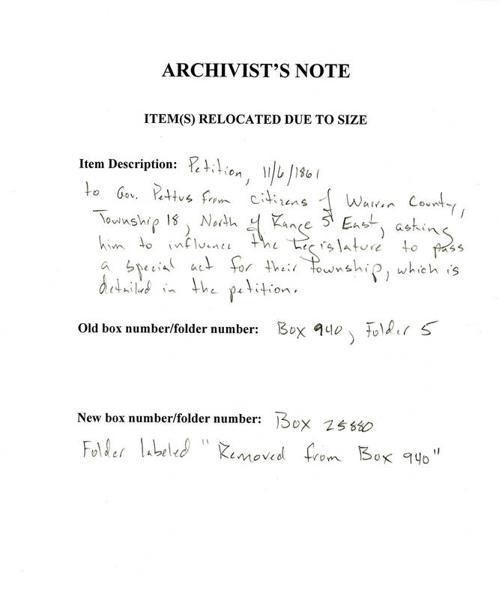 ARCHIVIST'S NOTE
ITEM(S) RELOCATED DUE TO SIZE
Item Description: Petition, 11/6/1861
to Gov. Pettus from citizens of Warren County,
Township 18, North of Range 5 East, asking
him to influence the Legislature to pass
a special act for their township, which is
detailed in the petition.
Old box number/folder number: Box 940, Folder 5
New box number/folder number: Box 25880
Folder labeled "Removed from Box 940"